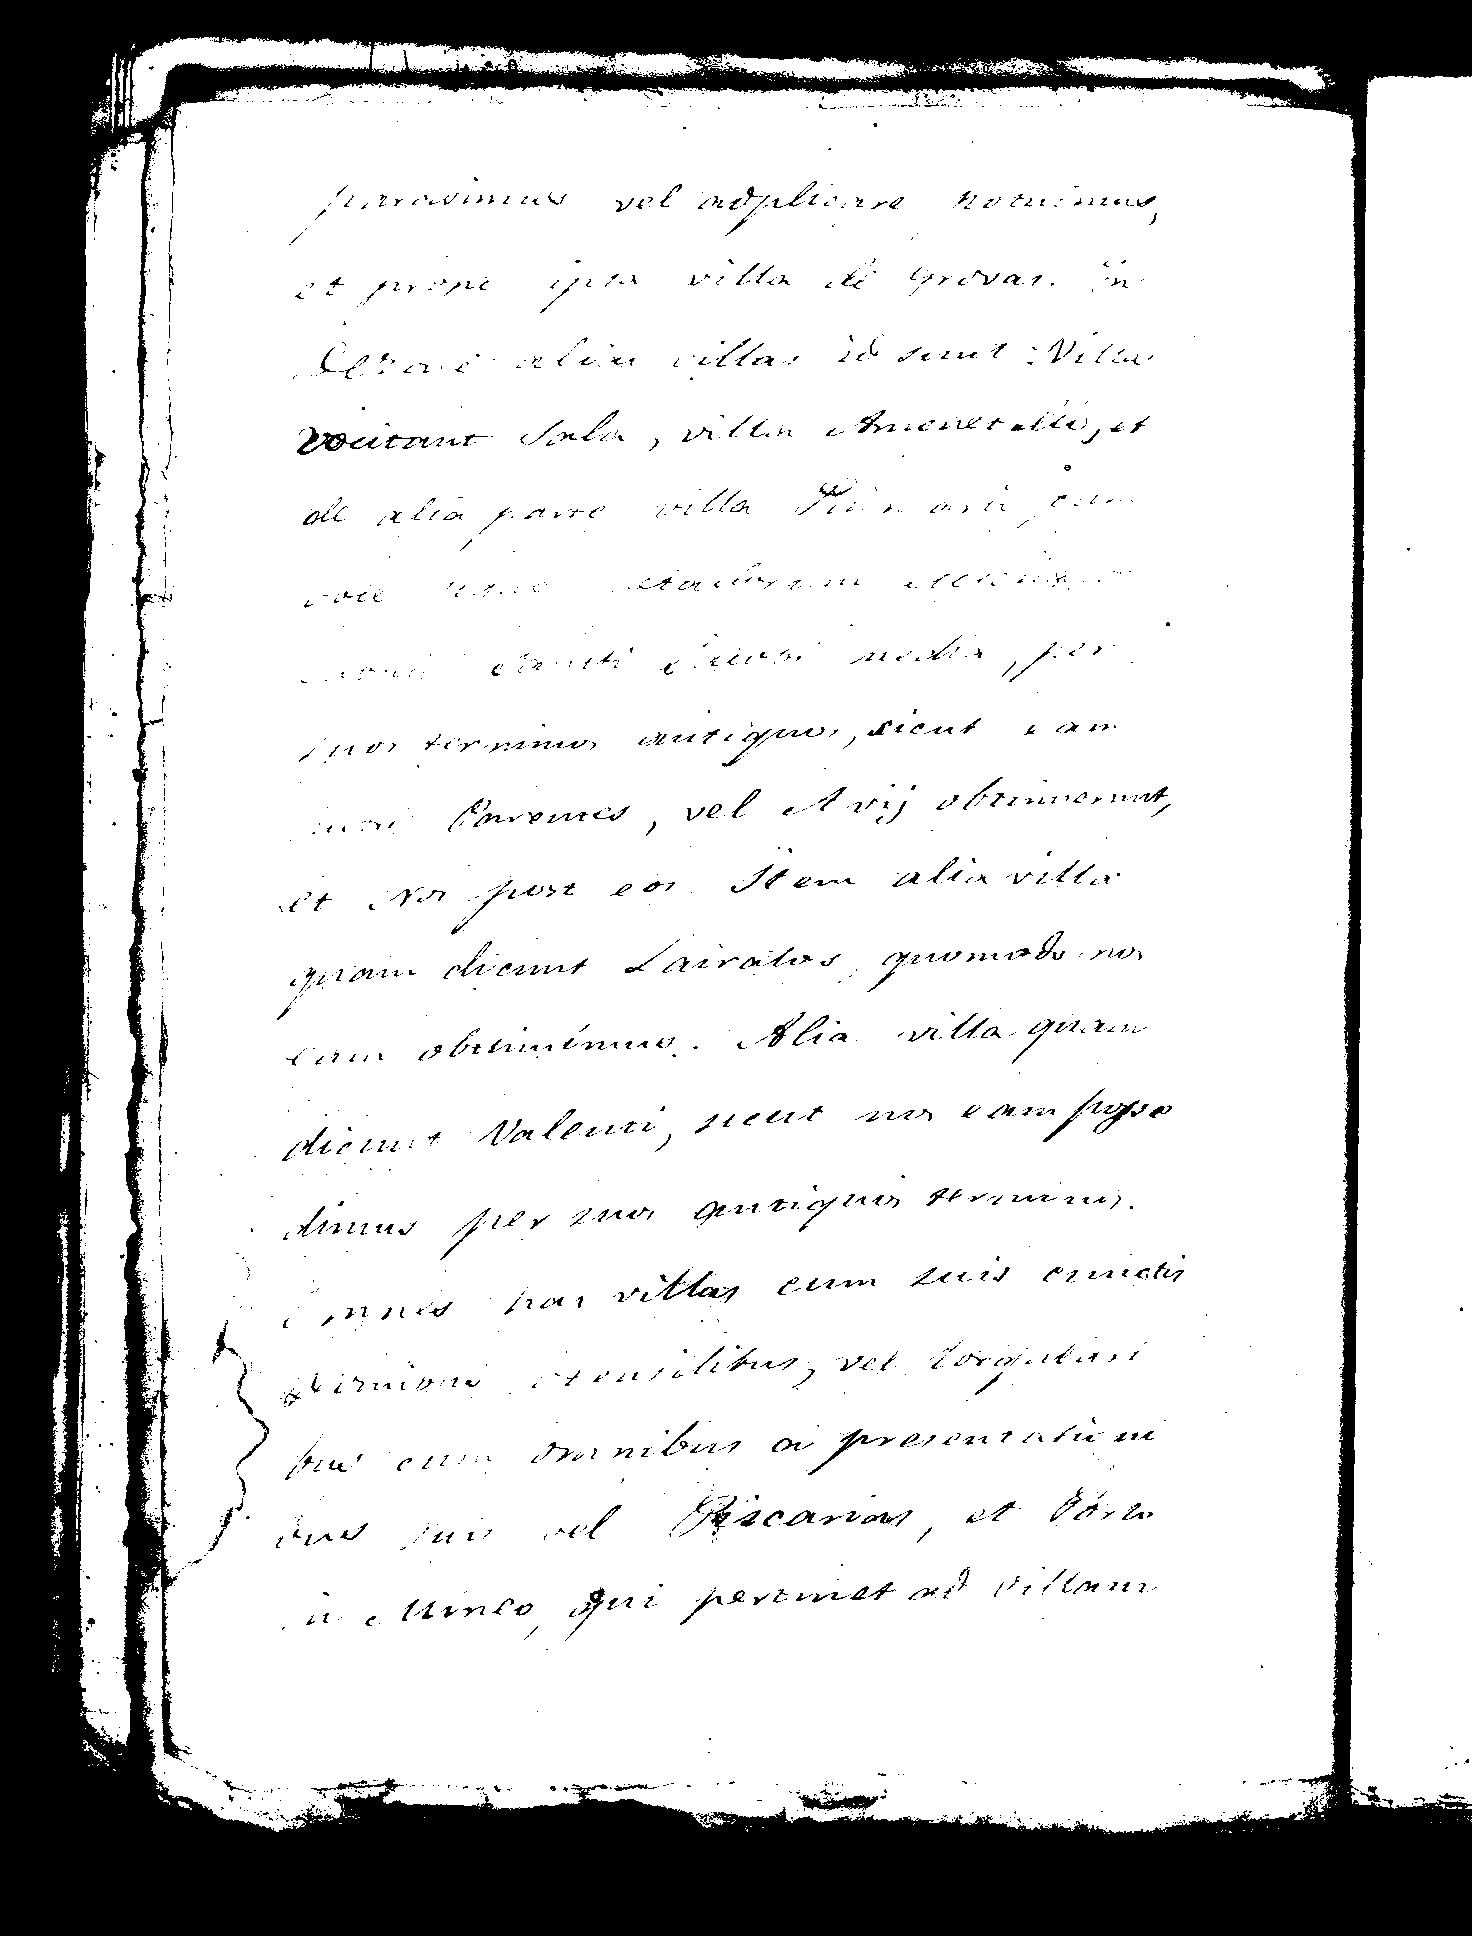 paravimus vel adplicare potuimus,
et prope ipsa villa de Grovas. In
Dezone alias villas id sunt: Villa
vocitant Sala, villa Amenetellis, et
de alia parte villa cum
per
suos terminos antiquos, sicut eam
Parentes, vel Avij obtinuerunt,
et Nos post eos. Item alia villa
quam dicunt Lairatos, quomodo nos
eam obtinuimus. Alia villa quam
dicunt Valenti, sicut nos eam posse
dimus per suos antiquis terminis.
Omnes has villas cum suis cunctis
utensilibus, vel torquulari
bus cum omnibus a presentationi
bus suis vel Piscarias, et Porto
in Mineo, qui pertinet ad villam